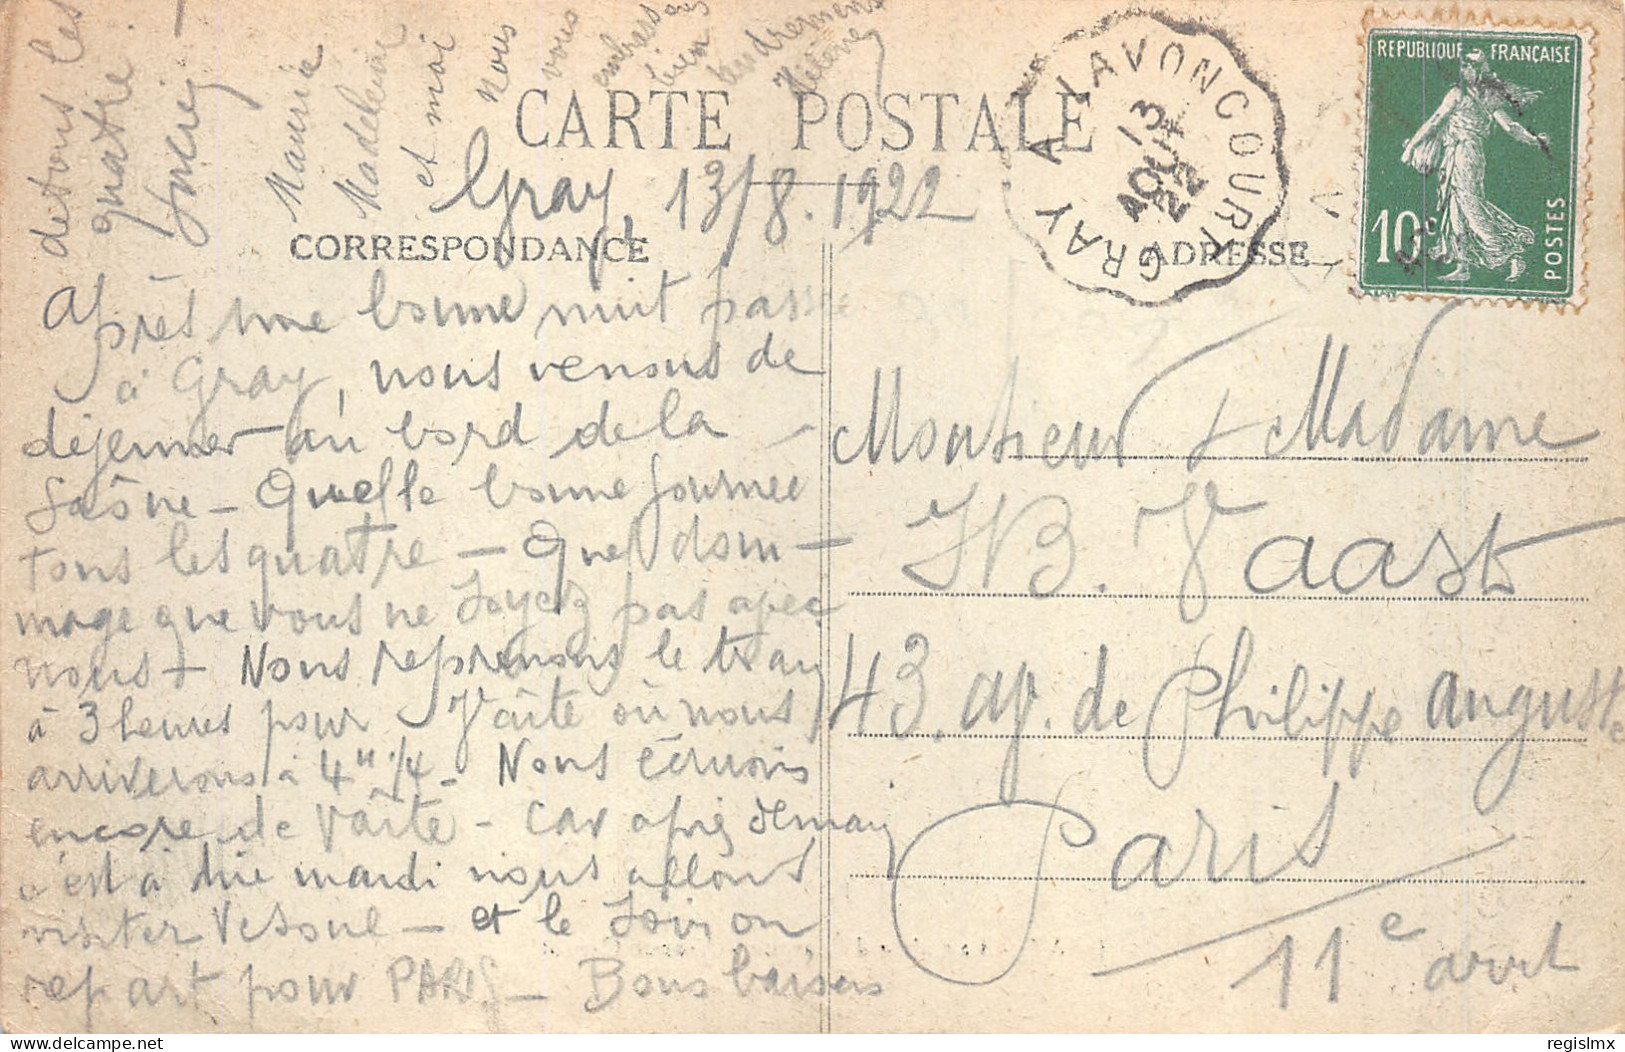 CARTE POSTALE
Gray, 13/8.1922
CORRESPONDANCE
ADRESSE
Après une bonne nuit passée
à Gray, nous venons de
déjeuner au bord de la
Saône - Quelle bonne journée
tous les quatre - Quel dom-
mage que vous ne soyez pas avec
nous - Nous reprenons le train
à 3 heures pour Vaite où nous
arriverons à 4h 1/4 - Nous écrirons
encore de Vaite - car après demain
c'est à dire mardi nous allons
visiter Vesoul - et le soir on
repart pour PARIS - Bons baisers
de tous les
quatre.
Maurice
Madeleine
et moi
nous
vous
embrassons
bien
tendrement
Hélène
GRAY A VAVONCOURT
13
AOUT
22
REPUBLIQUE FRANÇAISE
10c
POSTES
Monsieur & Madame
JB. Vaast
43, av. de Philippe Auguste
Paris
11e arrt
delcampe.net
regislmx